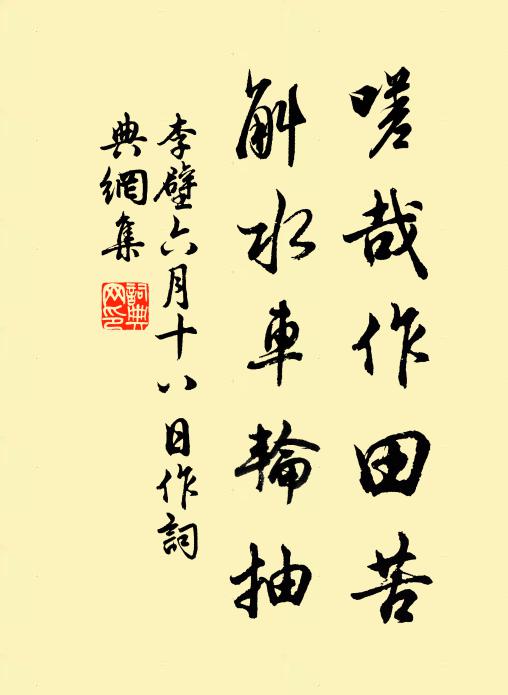 嗟哉作田苦
斛水車輪抽
李壁六月十八日作詞
典網集
詞典
网印